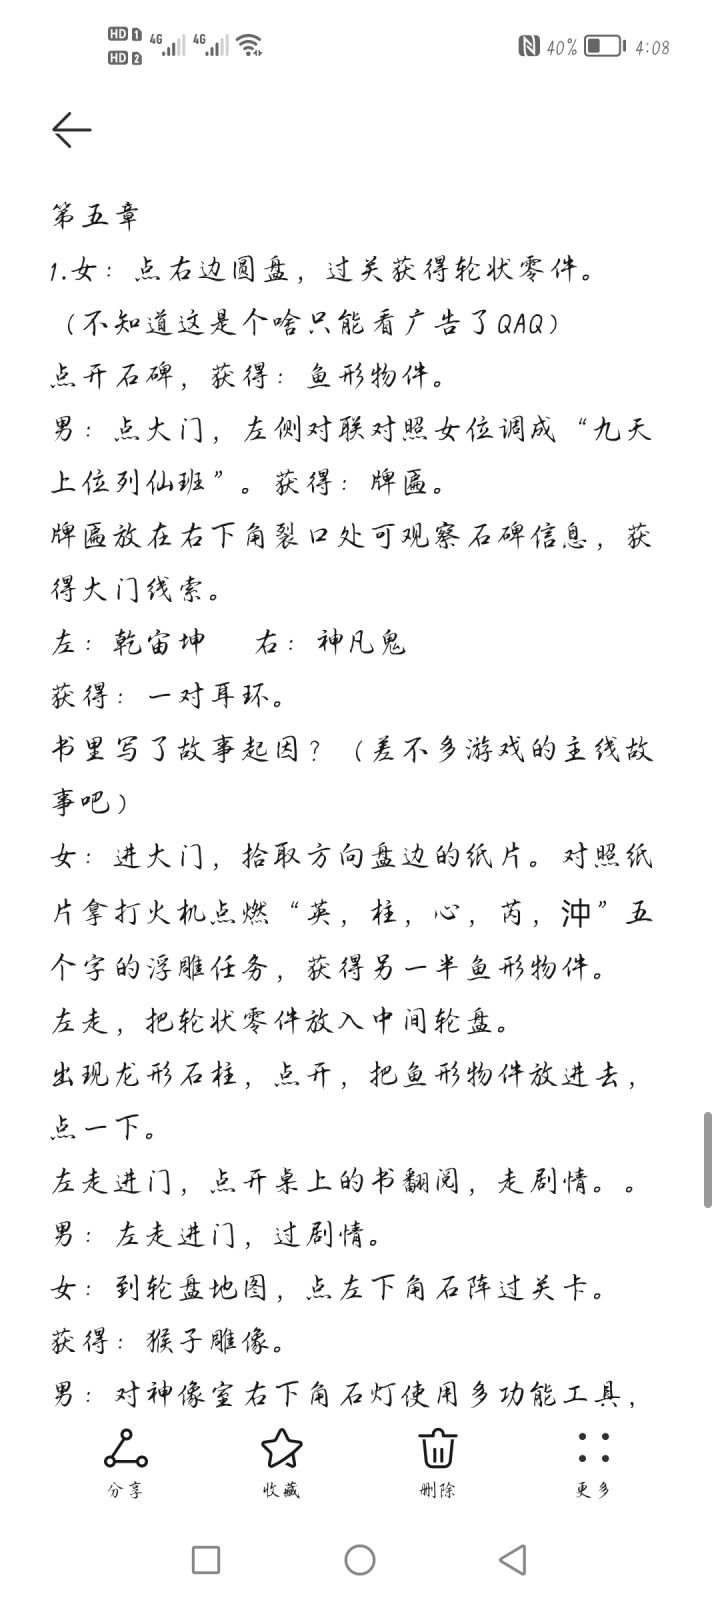 HD 1 4G 4G
HD 2
40% 4:08
第五章
1.女：点右边圆盘，过关获得轮状零件。
（不知道这是个啥只能看广告了QAQ）
点开石碑，获得：鱼形物件。
男：点大门，左侧对联对照女位调成“九天
上位列仙班”。获得：牌匾。
牌匾放在右下角裂口处可观察石碑信息，获
得大门线索。
左：乾宙坤 右：神凡鬼
获得：一对耳环。
书里写了故事起因？（差不多游戏的主线故
事吧）
女：进大门，拾取方向盘边的纸片。对照纸
片拿打火机点燃“英，柱，心，芮，沖”五
个字的浮雕任务，获得另一半鱼形物件。
左走，把轮状零件放入中间轮盘。
出现龙形石柱，点开，把鱼形物件放进去，
点一下。
左走进门，点开桌上的书翻阅，走剧情。。
男：左走进门，过剧情。
女：到轮盘地图，点左下角石阵过关卡。
获得：猴子雕像。
男：对神像室右下角石灯使用多功能工具，
分享 收藏 删除 更多